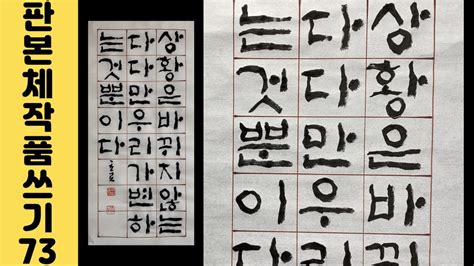 판본체작품쓰기73
상황은바뀌지않는
다다만우리가변하
는것뿐이다
상황은바뀌
다다만우리
는것뿐이다